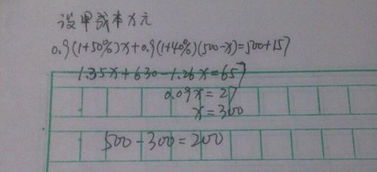 设甲成本x元
0.9(1+50%)x+0.9(1+40%)(500-x)=500+157
1.35x+630-1.26x=657
0.09x=27
x=300
500-300=200